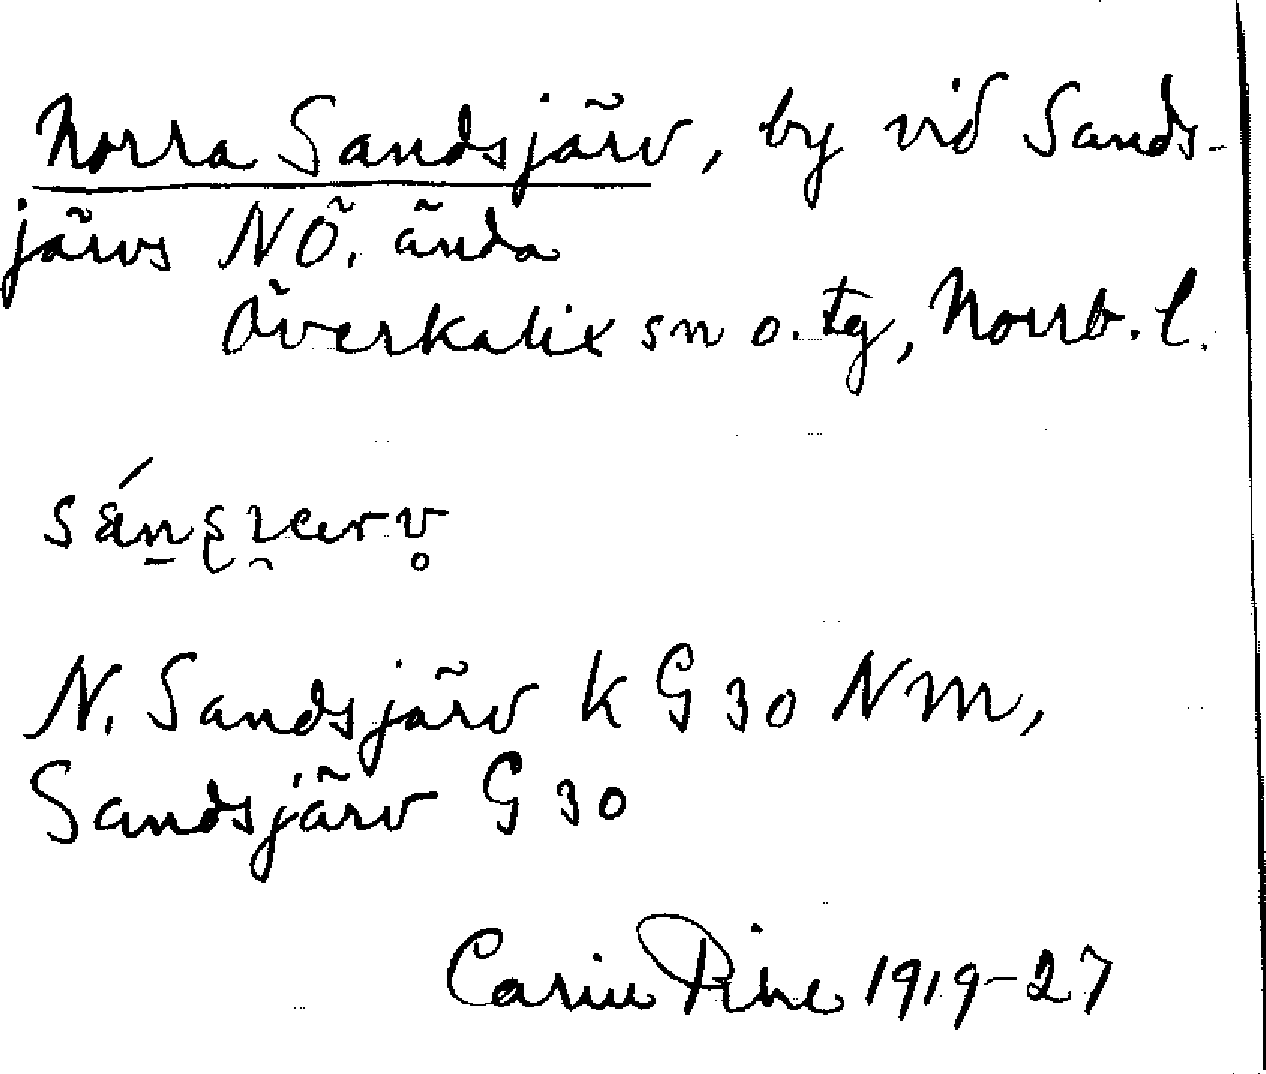 Norra Sandsjärv, by vid Sands-
järvs NÖ. ända
Överkalix sn o. tg, Norrb. l.
N. Sandsjärv K G 30 NM,
Sandsjärv G 30
Carin Pihl 1919-27